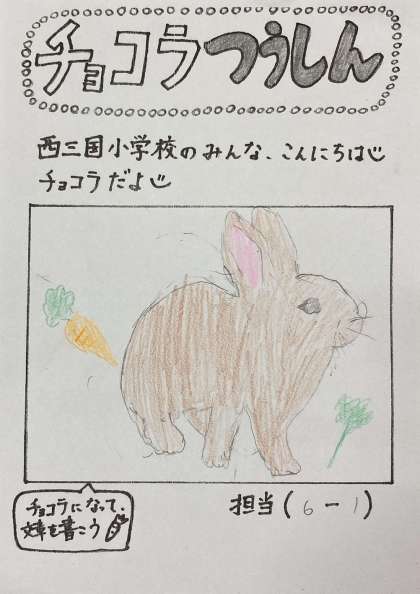 チョコラつうしん
西三国小学校のみんな、こんにちは
チョコラだよ
担当(6-1)
チョコラになって、
文章を書こう